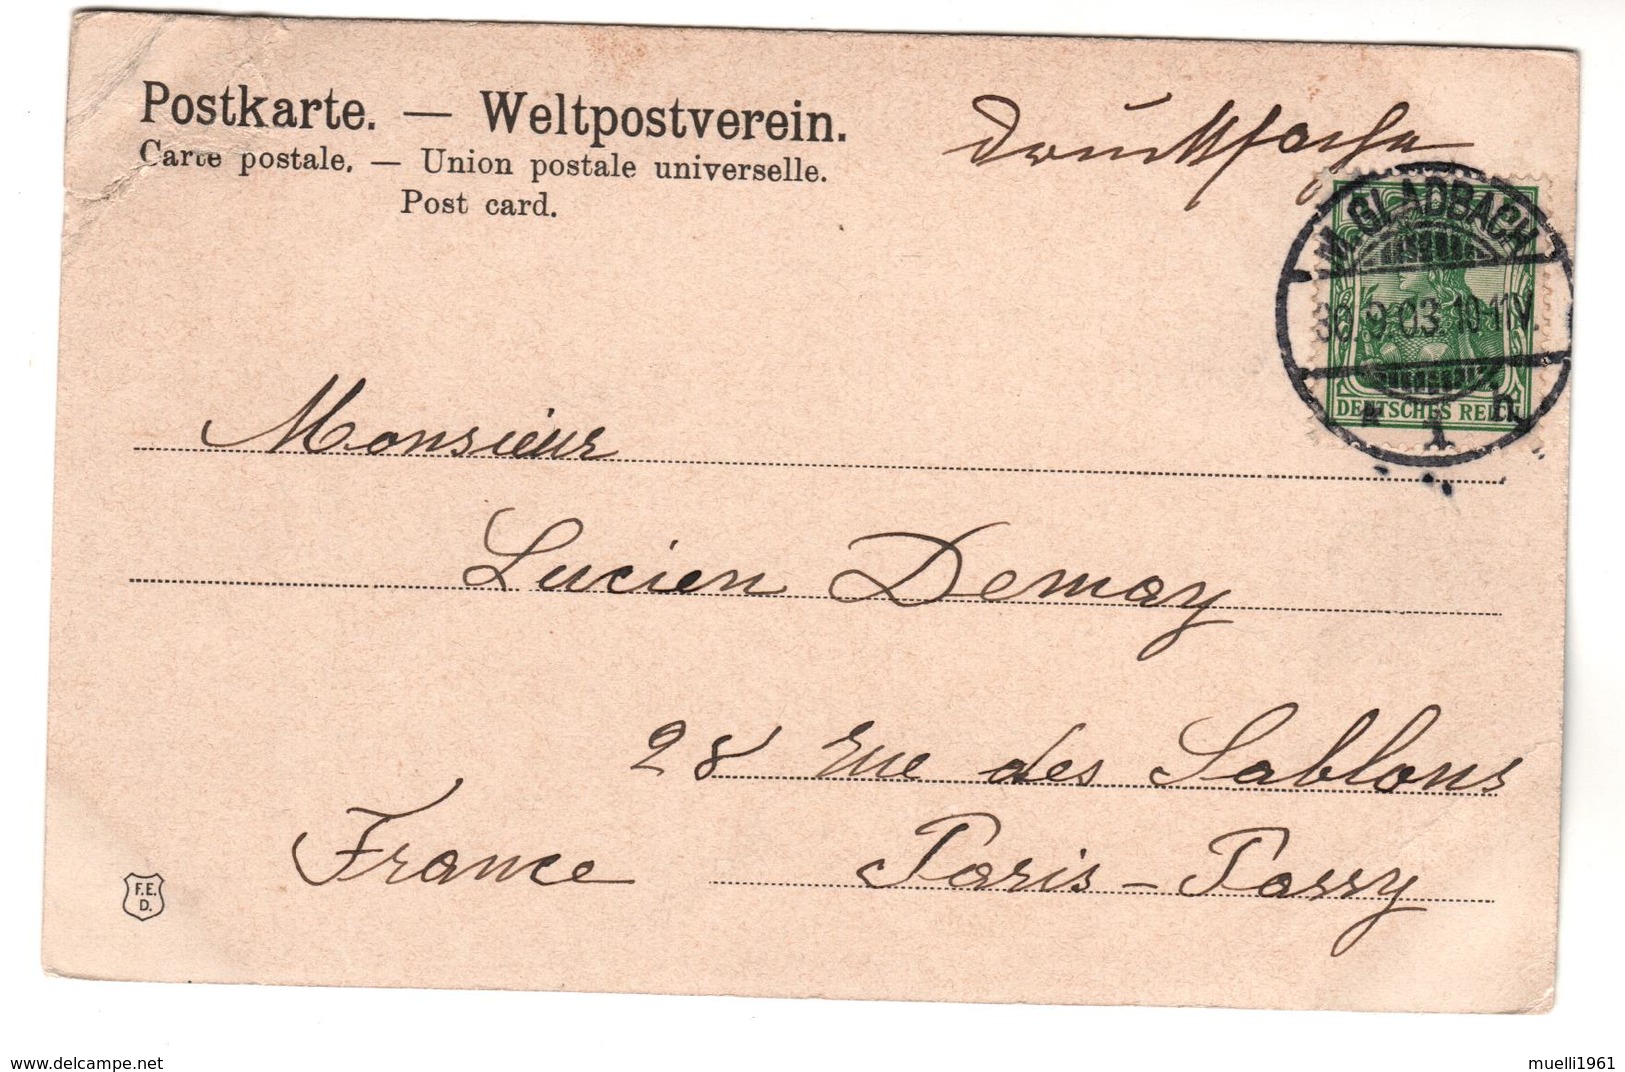 Postkarte. — Weltpostverein.
Carte postale. — Union postale universelle.
Post card.
Drucksache
M.GLADBACH
30.9.03.10-11V.
* 1 h
DEUTSCHES REICH
Monsieur
Lucien Demay
28 rue des Sablons
France Paris-Passy
F.E.
D.
www.delcampe.net
muelli1961